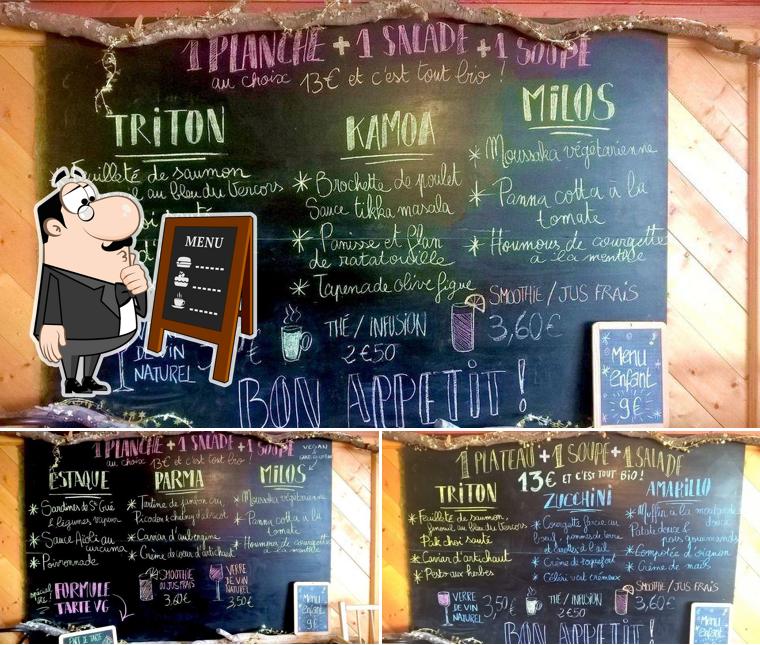 1 PLANCHE + 1 SALADE + 1 SOUPE
au choix 13€ et c'est tout bio !
TRITON
Feuilleté de saumon
au bleu du Vercors
KAMOA
* Brochette de poulet
Sauce tikka masala
* Panisse et flan
de ratatouille
* Tapenade olive figue
MILOS
* Moussaka végétarienne
* Panna cotta à la
tomate
* Houmous de courgette
à la menthe
MENU
DE VIN
NATUREL
€
THÉ / INFUSION
2€50
SMOOTHIE / JUS FRAIS
3,60€
Menu
enfant
9€
BON APPETIT !
1 PLANCHE + 1 SALADE + 1 SOUPE
au choix 13€ et c'est tout bio !
VEGAN
ESTAQUE
* Sardines de St Gué
& légumes vapeur
* Sauce Aïoli au
curcuma
* Poivronade
PARMA
* Tartine de jambon cru
Picodon & chutney d'abricot
* Caviar d'aubergine
* Crème de cœur d'artichaut
MILOS
* Moussaka végétarienne
* Panna cotta à la
tomate
* Houmous de courgette
à la menthe
FORMULE
TARTE VG
SMOOTHIE
OU JUS FRAIS
3,60€
VERRE
DE VIN
NATUREL
3,50€
Menu
enfant
9€
1 PLATEAU + 1 SOUPE + 1 SALADE
13€ ET C'EST TOUT BIO !
TRITON
* Feuilleté de saumon,
fenouil au bleu du Vercors
* Pak choi sauté
* Caviar d'artichaut
* Pesto aux herbes
ZUCCHINI
* Courgette farcie au
bœuf, pommes de terre
et carottes à l'ail
* Crème de roquefort
* Céleri rave crémeux
AMARILLO
* Muffin à la moutarde
douce
Patate douce &
pois gourmands
* Compotée d'oignon
* Crème de maïs
VERRE
DE VIN
NATUREL
3,50€
THÉ / INFUSION
2€50
SMOOTHIE / JUS FRAIS
3,60€
Menu
enfant
BON APPETIT !